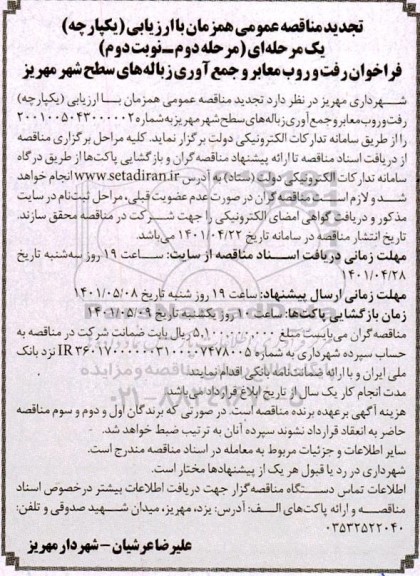 تجدید مناقصه عمومی همزمان با ارزیابی (یکپارچه)
یک مرحله‌ای (مرحله دوم - نوبت دوم)
فراخوان رفت و روب معابر و جمع آوری زباله های سطح شهر مهریز
شهرداری مهریز در نظر دارد تجدید مناقصه عمومی همزمان با ارزیابی (یکپارچه)
رفت و روب معابر و جمع آوری زباله های سطح شهر مهریز به شماره ۲۰۰۱۰۰۵۰۴۳۰۰۰۰۰۲
را از طریق سامانه تدارکات الکترونیکی دولت برگزار نماید. کلیه مراحل برگزاری مناقصه
از دریافت اسناد مناقصه تا ارائه پیشنهاد مناقصه گران و بازگشایی پاکت‌ها از طریق درگاه
سامانه تدارکات الکترونیکی دولت (ستاد) به آدرس www.setadiran.ir انجام خواهد
شد و لازم است مناقصه گران در صورت عدم عضویت قبلی، مراحل ثبت‌نام در سایت
مذکور و دریافت گواهی امضای الکترونیکی را جهت شرکت در مناقصه محقق سازند.
تاریخ انتشار مناقصه در سامانه تاریخ ۱۴۰۱/۰۴/۲۲ می‌باشد.
مهلت زمانی دریافت اسناد مناقصه از سایت: ساعت ۱۹ روز سه‌شنبه تاریخ
۱۴۰۱/۰۴/۲۸
مهلت زمانی ارسال پیشنهاد: ساعت ۱۹ روز شنبه تاریخ ۱۴۰۱/۰۵/۰۸
زمان بازگشایی پاکت‌ها: ساعت ۱۰ روز یکشنبه تاریخ ۱۴۰۱/۰۵/۰۹
مناقصه گران می‌بایست مبلغ ۵,۱۰۰,۰۰۰,۰۰۰ ریال بابت ضمانت شرکت در مناقصه به
حساب سپرده شهرداری به شماره نزد بانک
ملی ایران و یا ارائه ضمانت‌نامه بانکی اقدام نمایند.
مدت انجام کار یک سال از تاریخ ابلاغ قرارداد می‌باشد.
هزینه آگهی برعهده برنده مناقصه است. در صورتی که برندگان اول و دوم و سوم مناقصه
حاضر به انعقاد قرارداد نشوند سپرده آنان به ترتیب ضبط خواهد شد.
سایر اطلاعات و جزئیات مربوط به معامله در اسناد مناقصه مندرج است.
شهرداری در رد یا قبول هر یک از پیشنهادها مختار است.
اطلاعات تماس دستگاه مناقصه‌گزار جهت دریافت اطلاعات بیشتر درخصوص اسناد
مناقصه و ارائه پاکت‌های الف: آدرس: یزد، مهریز، میدان شهید صدوقی و تلفن:
۰۳۵۳۲۵۲۲۰۴۰
علیرضا عرشیان - شهردار مهریز